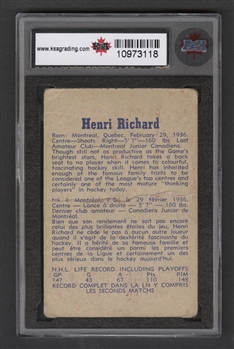 www.ksagrading.com
KSA
10973118
Henri Richard
Born: Montreal, Quebec, February 29, 1936.
Centre—Shoots Right—5' 7"—160 lbs Last
Amateur Club—Montreal Junior Canadiens.
Though still not as productive as the Game's
brightest stars, Henri Richard takes a back
seat to no player when it comes to colourful,
fascinating hockey skill. Henri has inherited
enough of the famous family traits to be
considered one of the League's top centres and
certainly one of the most mature "thinking
players" in hockey today.
Né à Montréal, 29 février 1936.
Centre — Lance à droite — 5' 7" — 160 lbs.
Dernier club amateur — Canadiens Junior de
Montréal.
Bien que son rendement soit encore en dessous
de celui des autres brillantes étoiles du jeu, Henri
Richard ne le cède à aucun
du hockey. Il a hérité de sa fameuse famille
pour être considéré un des premiers
centres de la Ligue et certainement un des plus
sérieux dans le hockey d'aujourd'hui.
N.H.L. LIFE RECORD INCLUDING PLAYOFFS
GP G A Pts PIM
147 43 67 110 148
RECORD COMPLET DANS LA LN Y COMPRIS
LES SECONDS MATCHS